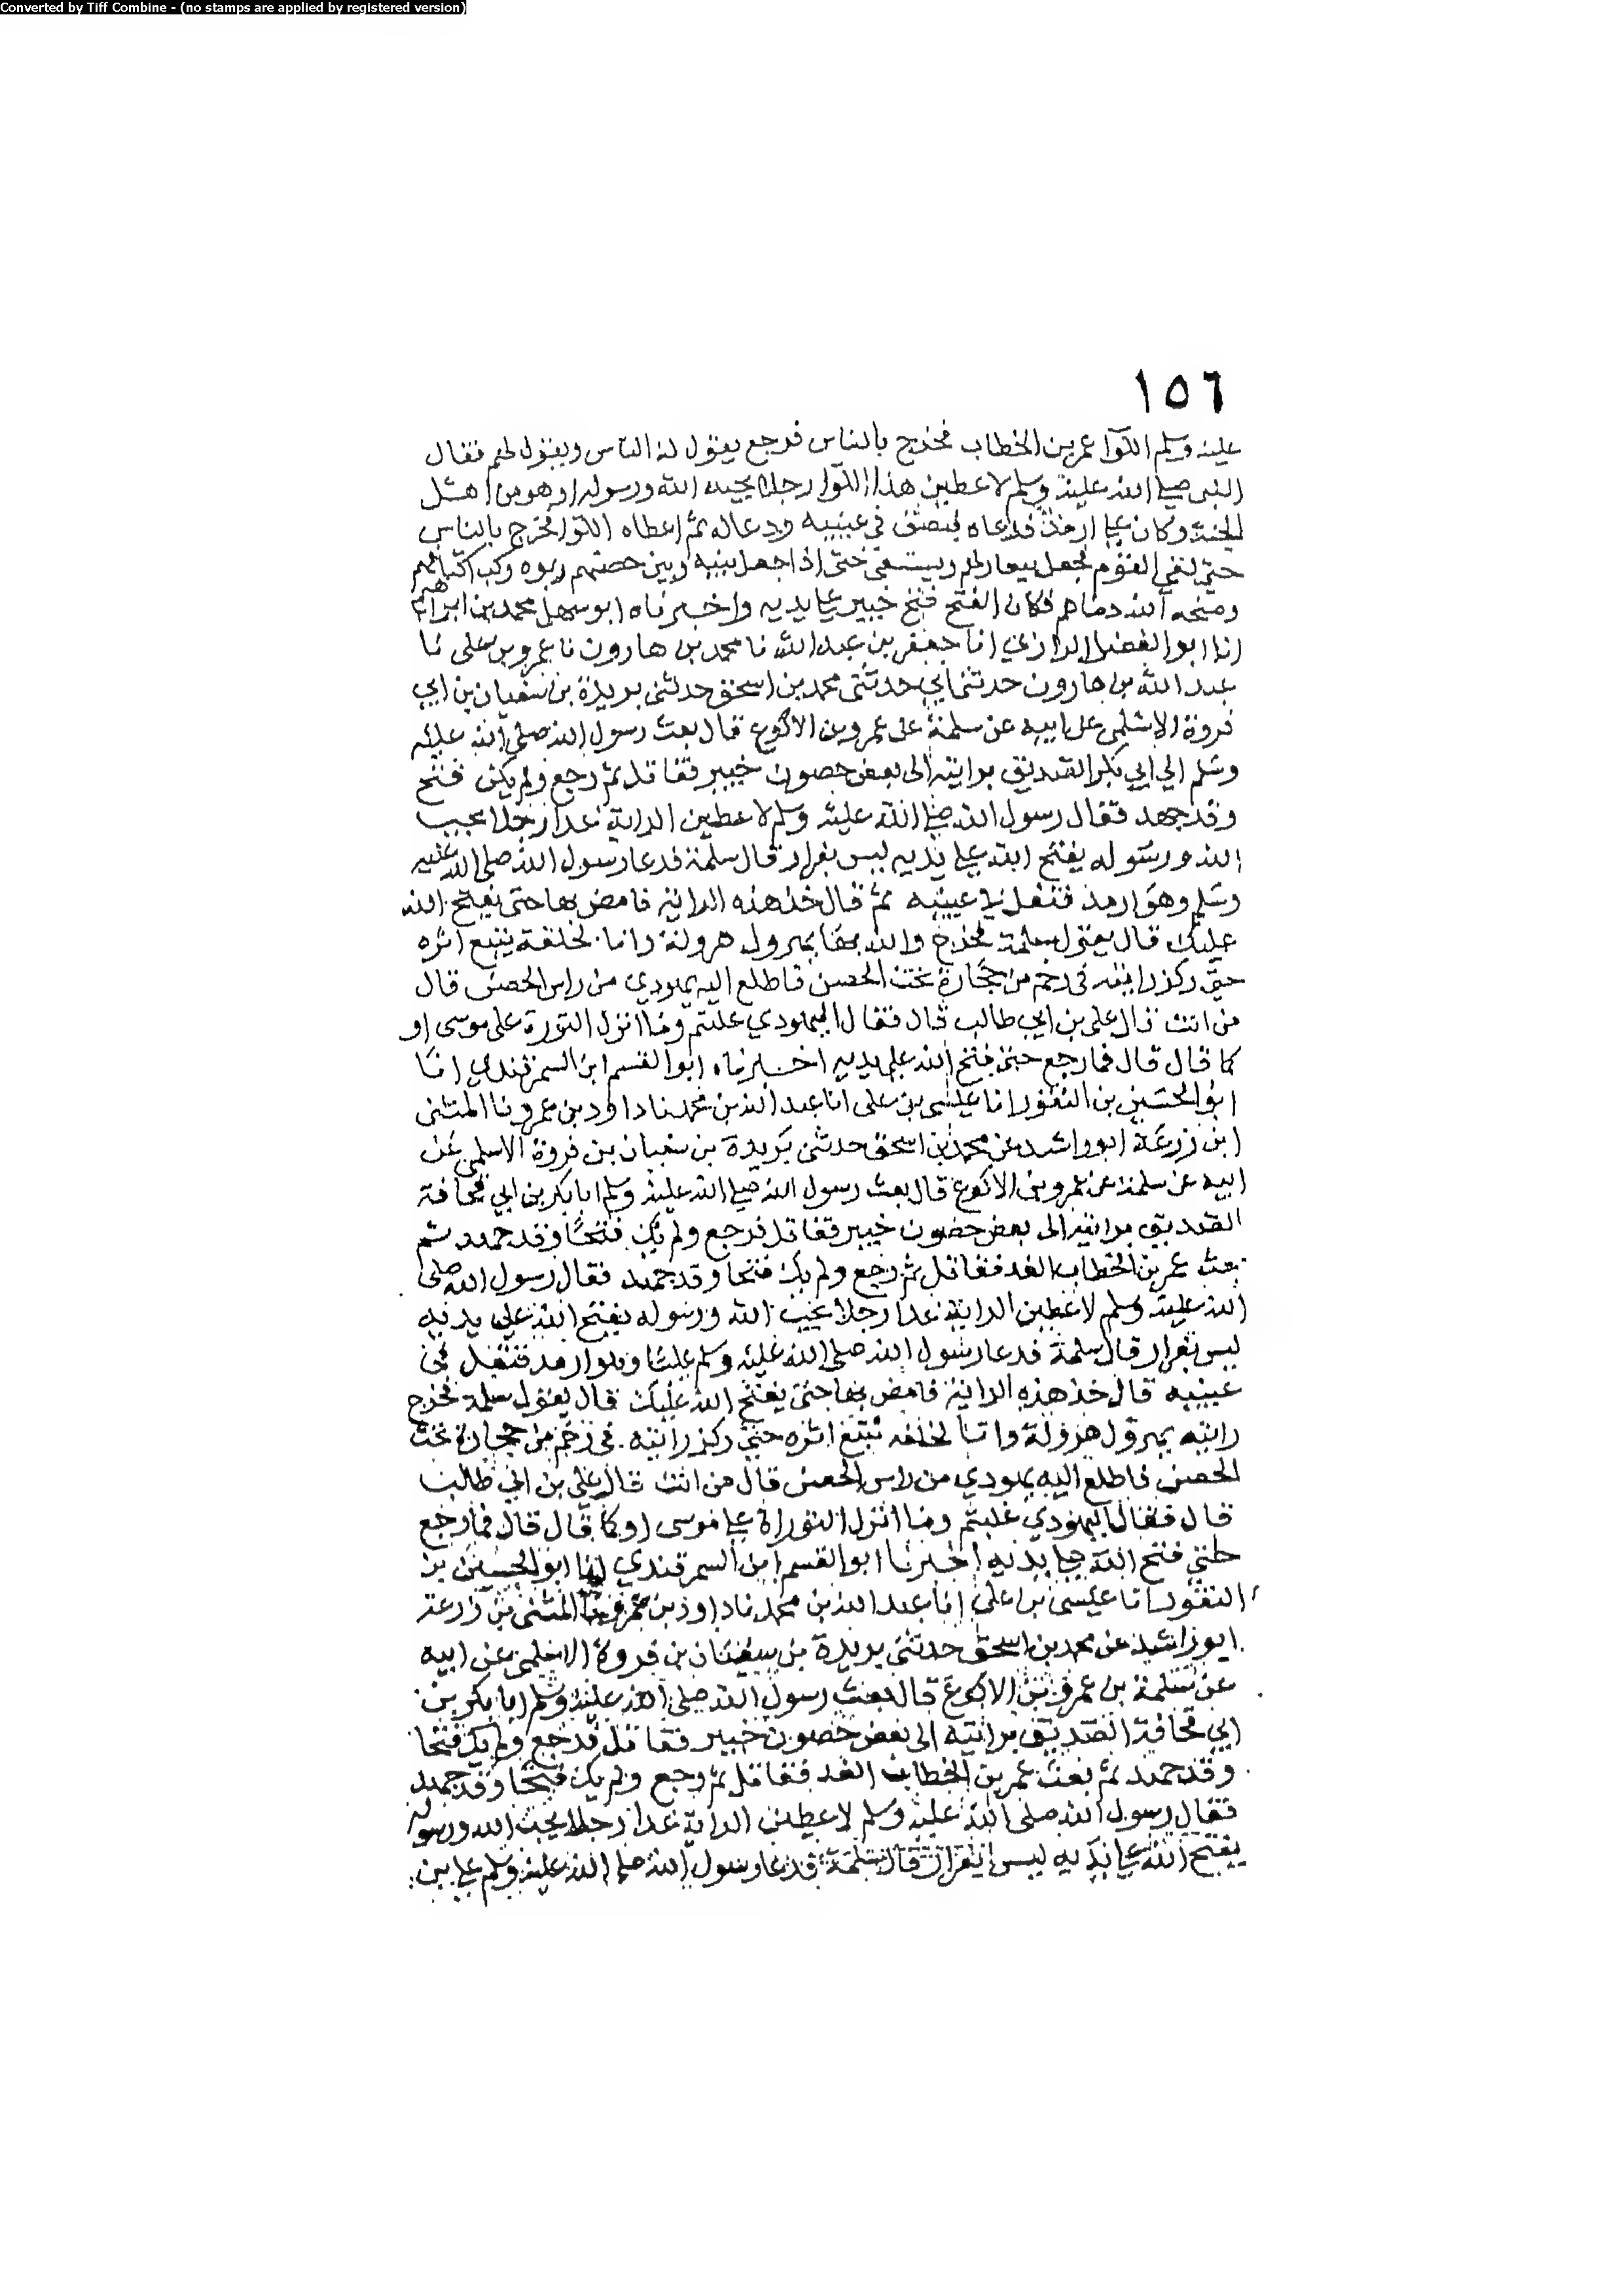 Converted by Tiff Combine - (no stamps are applied by registered version)
١٥٦
عليه وسلم اللوا عمر بن الخطاب فخرج بالناس فرجع يقول له الناس ويقول لهم فقال
النبى صلى الله عليه وسلم لاعطين هذا اللوا رجلا يحبه الله ورسوله او هو من اهل
الجنة وكان على ارمد فدعاه فبصق فى عينيه ودعا له ثم اعطاه اللوا فخرج بالناس
حتى لقى القوم فجعل حتى اذا جعل بينه وبين حصنهم ربوه
ومنحه الله دماهم فكان الفتح فتح خيبر على يديه واخبرناه ابو سهل محمد بن ابراهيم
انا ابو الفضل الرازي انا جعفر بن عبد الله نا محمد بن هارون نا عمرو بن على نا
عبد الله بن هارون حدثنى ابي حدثنى محمد بن اسحق حدثنى بريدة بن سفيان بن ابي
فروة الاسلمى عن ابيه عن سلمة على عمرو بن الاكوع قال بعث رسول الله صلى الله عليه
وسلم الي ابي بكر الصديق برايته الى بعض حصون خيبر فقاتل ثم رجع ولم يكن فتح
وقد جهد فقال رسول الله صلى الله عليه وسلم لاعطين الراية غدا رجلا يحب
الله ورسوله يفتح الله على يديه ليس بفرار قال سلمة فدعا رسول الله صلى الله عليه
وسلم وهو ارمد فتفل في عينيه ثم قال خذ هذه الراية فامض بها حتى يفتح الله
عليك قال يقول سلمة فخرج والله بها يهرول هرولة وانا لخلفه يتبع اثره
حتى ركز رايته فى رضم من حجارة تحت الحصن فاطلع اليه يهودي من راس الحصن قال
من انت قال على بن ابي طالب قال فقال اليهودي علتم وما انزل التورة على موسى او
كما قال قال فما رجع حتى فتح الله على يديه اخبرناه ابو القسم ابن السمرقندي انا
ابو الحسين بن النقور انا عيسى بن على انا عبد الله بن محمد نا داود بن عمرو نا المثنى
ابن زرعة ابو راشد عن محمد بن اسحق حدثنى بريدة بن سفيان بن فروة الاسلمى عن
ابيه عن سلمة عن عمرو بن الاكوع قال بعث رسول الله صلى الله عليه وسلم ابا بكر بن ابي قحافة
الصديق برايته الى بعض حصون خيبر فقاتل فرجع ولم يكن فتحا وقد جهد ثم
بعث عمر بن الخطاب الغد فقاتل ثم رجع ولم يك فتحا وقد جهد فقال رسول الله صلى
الله عليه وسلم لاعطين الراية غدا رجلا يحب الله ورسوله يفتح الله على يديه
ليس بفرار قال سلمة فدعا رسول الله صلى الله عليه وسلم عليا وهو ارمد فتفل فى
عينيه قال خذ هذه الراية فامض بها حتى يفتح الله عليك قال يقول سلمة فخرج
رايته يهرول هرولة وانا لخلفه نتبع اثره حتى ركز رايته فى رضم من حجارة تحت
الحصن فاطلع اليه يهودي من راس الحصن قال من انت قال على بن ابي طالب
قال فقال اليهودي غلبتم وما انزل التوراة على موسى او كما قال قال فما رجع
حتى فتح الله على يديه اخبرنا ابو القسم ابن السمرقندي انا ابو الحسين بن
النقور انا عيسى بن على انا عبد الله بن محمد نا داود بن عمرو نا المثنى بن زرعة
ابو راشد عن محمد بن اسحق حدثنى بريدة بن سفيان بن فروة الاسلمى عن ابيه
عن سلمة بن عمرو بن الاكوع قال بعث رسول الله صلى الله عليه وسلم ابا بكر بن
ابي قحافة الصديق برايته الى بعض حصون خيبر فقاتل فرجع ولم يك فتحا
وقد جهد ثم بعث عمر بن الخطاب الغد فقاتل ثم رجع ولم يكن فتحا وقد جهد
فقال رسول الله صلى الله عليه وسلم لاعطين الراية غدا رجلا يحب الله ورسوله
يفتح الله على يديه ليس بفرار قال سلمة فدعا رسول الله صلى الله عليه وسلم على بن